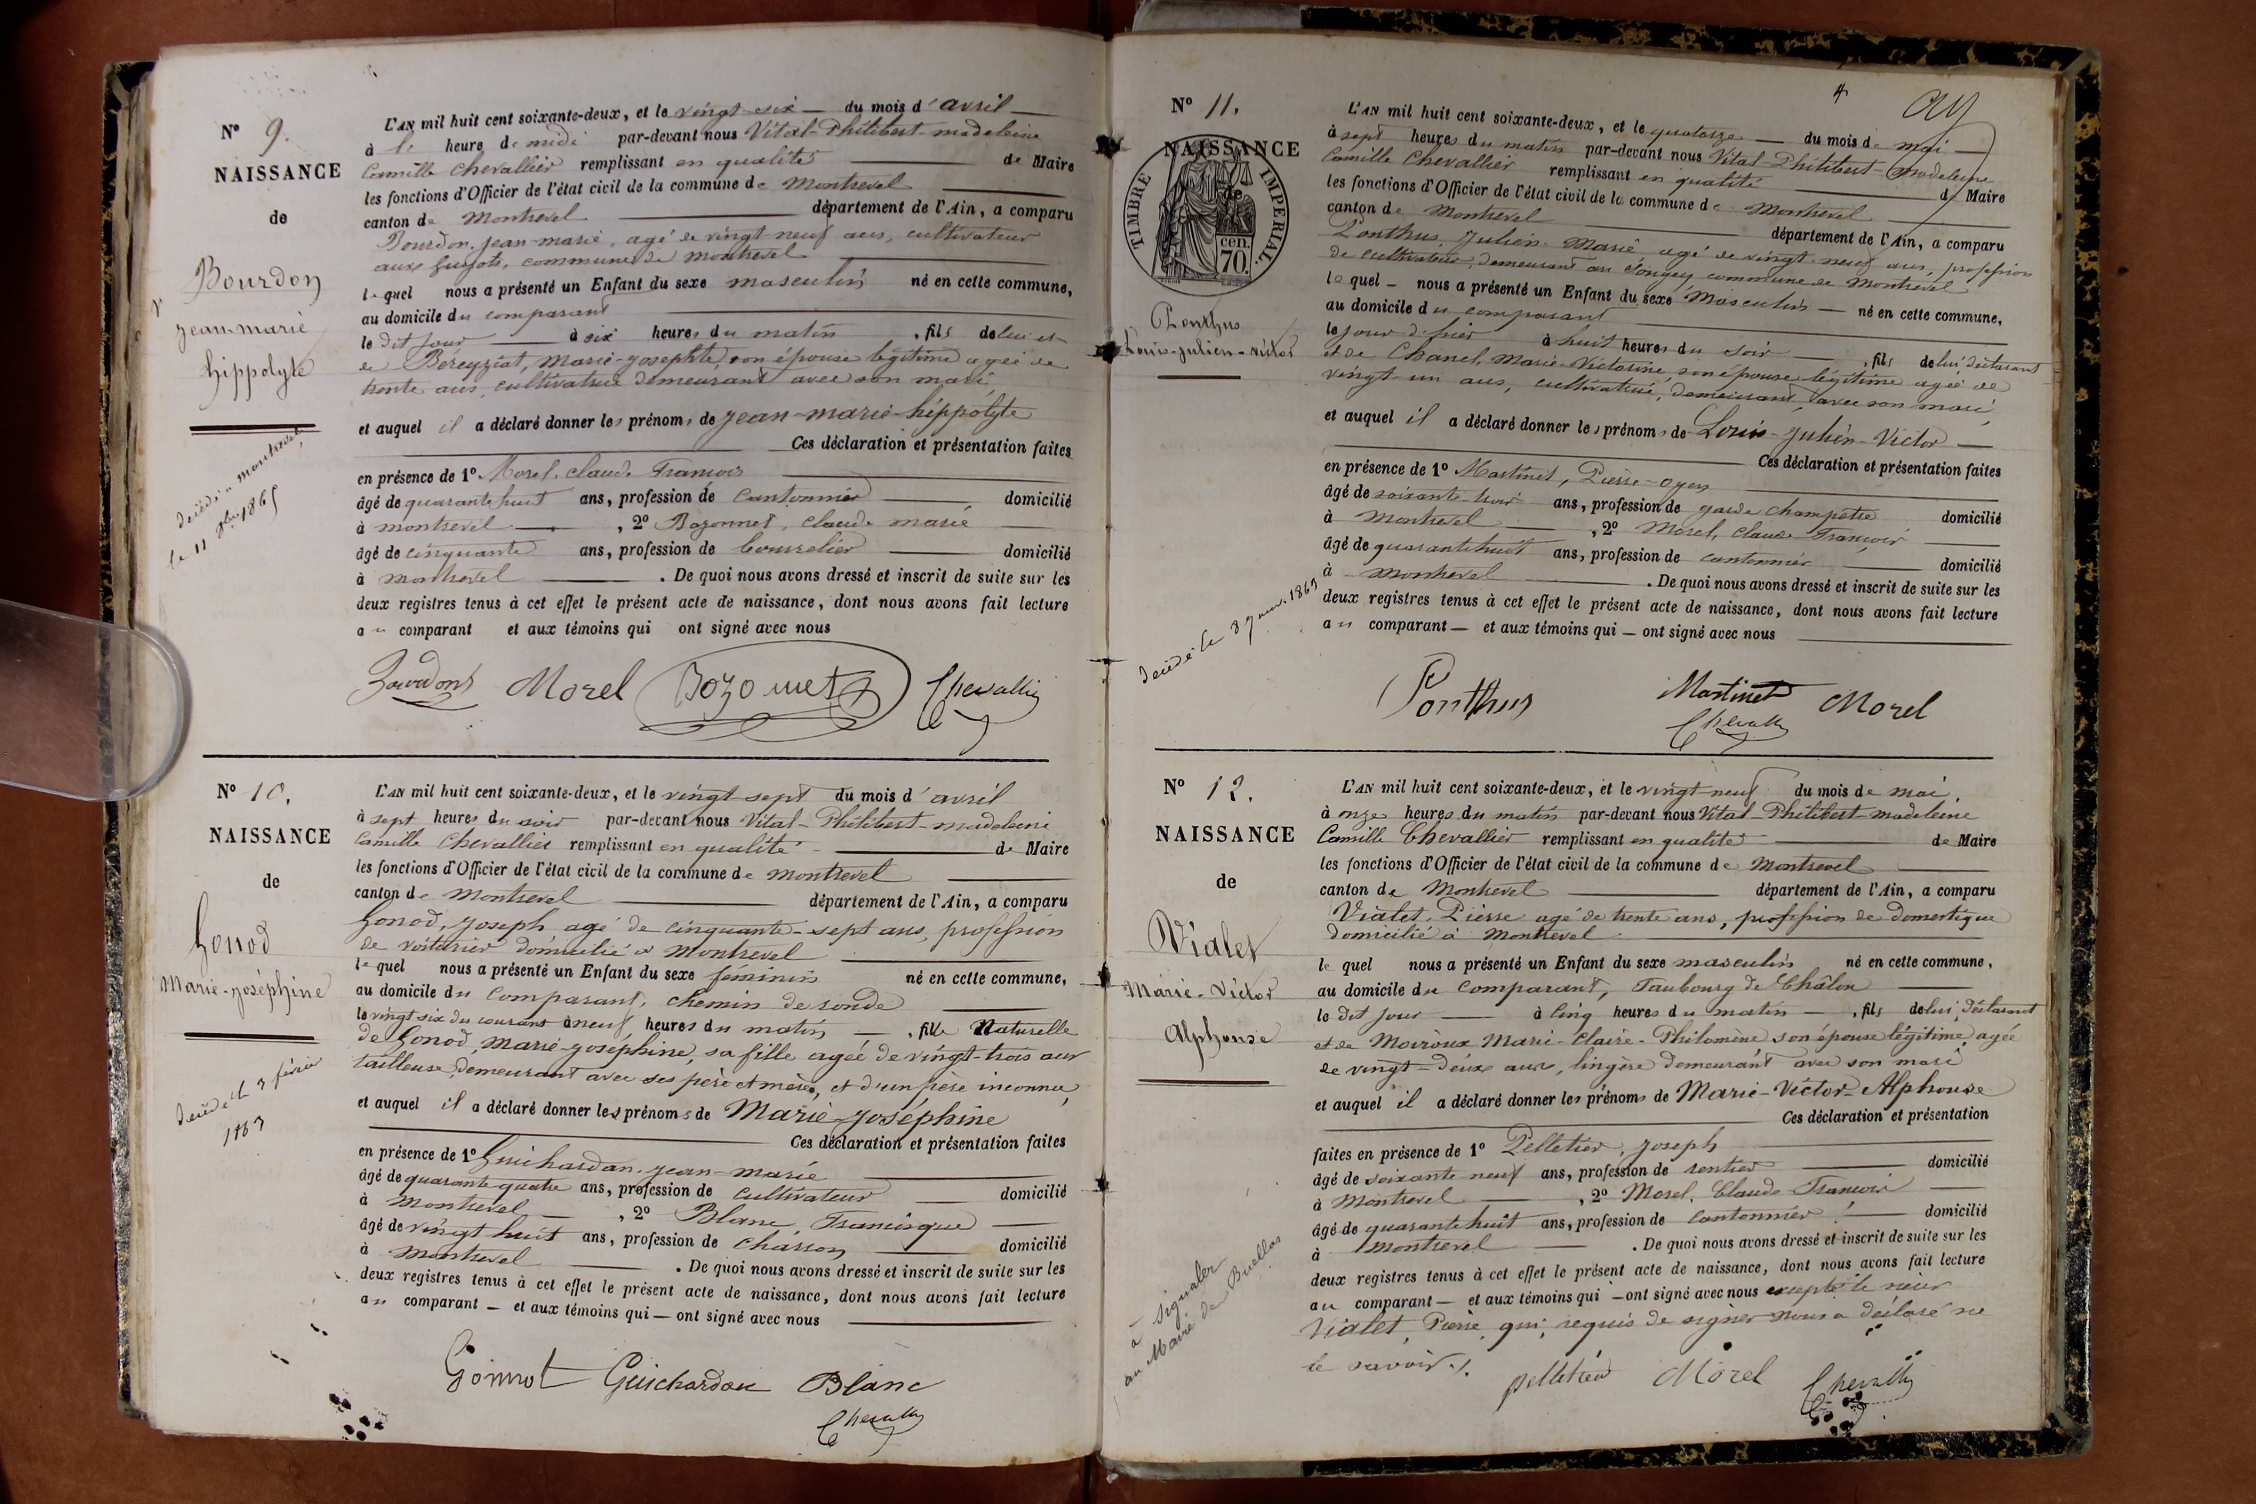 N° 9.
NAISSANCE
de
Bourdon
Jean-marie
hippolyte
décédé a montrevel,
le 11 8bre 1865
L'AN mil huit cent soixante-deux, et le vingt-six du mois d'avril
à heure de midi par-devant nous Vital-Philibert madeleine
Camille Chevallier remplissant en qualité de Maire
les fonctions d'Officier de l'état civil de la commune de Montrevel
canton de Montrevel département de l'Ain, a comparu
Bourdon, Jean-marie, agé de vingt neuf ans, cultivateur
aux guyots, commune de montrevel
lequel nous a présenté un Enfant du sexe masculin né en cette commune,
au domicile du comparant
le dit jour à six heures du matin, fils de lui et
de Bereyziat, Marie-josephte, son épouse légitime agée de
trente ans, cultivatrice demeurant avec son mari,
et auquel il a déclaré donner les prénoms de Jean-marie-hippolyte
Ces déclaration et présentation faites
en présence de 1° Morel, claude François
âgé de quarante huit ans, profession de Cantonnier domicilié
à montrevel, 2° Bozonnet, claude marie
âgé de cinquante ans, profession de bourrelier domicilié
à montrevel. De quoi nous avons dressé et inscrit de suite sur les
deux registres tenus à cet effet le présent acte de naissance, dont nous avons fait lecture
au comparant et aux témoins qui ont signé avec nous
Bourdon Morel Bozonnet Chevallier
N° 10.
NAISSANCE
de
Gonod
Marie-joséphine
décédé le 3 février
1863
L'AN mil huit cent soixante-deux, et le vingt-sept du mois d'avril
à sept heures du soir par-devant nous Vital-Philibert-madeleine
Camille Chevallier remplissant en qualité de Maire
les fonctions d'Officier de l'état civil de la commune de montrevel
canton de Montrevel département de l'Ain, a comparu
Gonod, Joseph agé de cinquante-sept ans, profession
de voiturier domicilié a Montrevel
lequel nous a présenté un Enfant du sexe féminin né en cette commune,
au domicile du comparant, chemin de ronde
le vingt six du courant à neuf heures du matin, fille Naturelle
de Gonod, Marie-joséphine, sa fille agée de vingt-trois ans
tailleuse, demeurant avec ses père et mère, et d'un père inconnu,
et auquel il a déclaré donner les prénoms de Marie-joséphine
Ces déclaration et présentation faites
en présence de 1° Guichardan, jean-marie
âgé de quarante quatre ans, profession de cultivateur domicilié
à Montrevel, 2° Blanc, Francisque
âgé de vingt huit ans, profession de charron domicilié
à montrevel. De quoi nous avons dressé et inscrit de suite sur les
deux registres tenus à cet effet le présent acte de naissance, dont nous avons fait lecture
au comparant – et aux témoins qui – ont signé avec nous
Gonnot Guichardan Blanc
Chevallier
4
N° 11.
NAISSANCE
de
TIMBRE IMPERIAL.
cen. 70.
Ponthus
Louis-julien-victor
décédé le 8 janv. 1863
L'AN mil huit cent soixante-deux, et le quatorze du mois de mai
à sept heures du matin par-devant nous Vital Philibert-Madeleine
Camille Chevallier remplissant en qualité de Maire
les fonctions d'Officier de l'état civil de la commune de Montrevel
canton de Montrevel département de l'Ain, a comparu
Ponthus, Julien-Marie agé de vingt-neuf ans, profession
de cultivateur, demeurant au commune de Montrevel
lequel – nous a présenté un Enfant du sexe Masculin – né en cette commune,
au domicile du comparant
le jour d'hier à huit heures du soir, fils de lui déclarant
et de Chanel, Marie-Victorine, son épouse légitime agée de
vingt-un ans, cultivatrice, demeurant avec son mari,
et auquel il a déclaré donner les prénoms de Louis-Julien-Victor
Ces déclaration et présentation faites
en présence de 1° Martinet, Pierre-oyen
âgé de soixante-trois ans, profession de garde champetre domicilié
à Montrevel, 2° Morel, Claude François
âgé de quarante huit ans, profession de cantonnier domicilié
à Montrevel. De quoi nous avons dressé et inscrit de suite sur les
deux registres tenus à cet effet le présent acte de naissance, dont nous avons fait lecture
au comparant – et aux témoins qui – ont signé avec nous
Ponthus Martinet Morel
Chevallier
N° 12.
NAISSANCE
de
Vialet
Marie-Victor
Alphonse
à signaler
au Maire de Buellas
L'AN mil huit cent soixante-deux, et le vingt neuf du mois de mai,
à onze heures du matin par-devant nous Vital-Philibert-madeleine
Camille Chevallier remplissant en qualité de Maire
les fonctions d'Officier de l'état civil de la commune de Montrevel
canton de Montrevel département de l'Ain, a comparu
Vialet, Pierre agé de trente ans, profession de domestique
domicilié à Montrevel
lequel nous a présenté un Enfant du sexe masculin né en cette commune,
au domicile du comparant, Faubourg de Châlon
le dit jour à cinq heures du matin, fils de lui, déclarant
et de Moiroux Marie-Claire-Philomène son épouse légitime, agée
de vingt-deux ans, lingère demeurant avec son mari
et auquel il a déclaré donner les prénoms de Marie-Victor-Alphonse
Ces déclaration et présentation
faites en présence de 1° Pelletier, Joseph
âgé de soixante neuf ans, profession de rentier domicilié
à Montrevel, 2° Morel, Claude François
âgé de quarante huit ans, profession de Cantonnier domicilié
à Montrevel. De quoi nous avons dressé et inscrit de suite sur les
deux registres tenus à cet effet le présent acte de naissance, dont nous avons fait lecture
au comparant – et aux témoins qui – ont signé avec nous excepté le sieur
Vialet, Pierre, qui, requis de signer nous a déclaré ne
le savoir.
pelletier Morel Chevallier